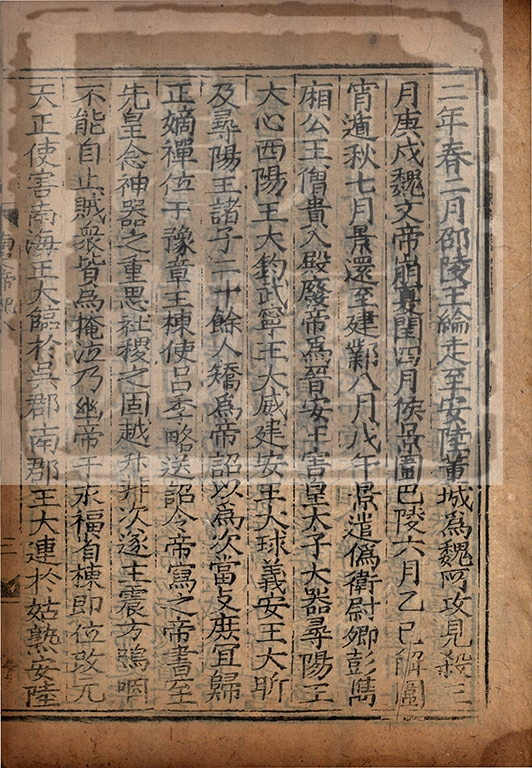 二年春二月邵陵王綸走至安陸董城爲魏所攻見殺三
月庚戌魏文帝崩夏閏四月侯景圍巴陵六月乙巳解圍
宵遁秋七月景還至建鄴八月戊午景遣僞衛尉卿彭儁
廂公王僧貴入殿廢帝爲晉安王害皇太子大器尋陽王
大心西陽王大鈞武寧王大威建安王大球義安王大昕
及尋陽王諸子二十餘人矯爲帝詔以爲次當支庶宜歸
正嫡禪位于豫章王棟使吕季略送詔令帝寫之帝書至
先皇念神器之重思社稷之固越升非次遂主震方嗚咽
不能自止賊衆皆爲掩泣乃幽帝于永福省棟即位改元
天正使害南海王大臨於吳郡南郡王大連於姑熟安陸